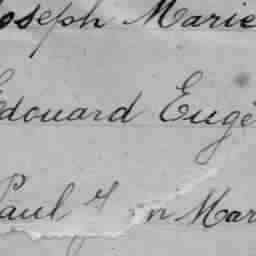 Joseph Marie
Edouard Eugè
Paul Mar